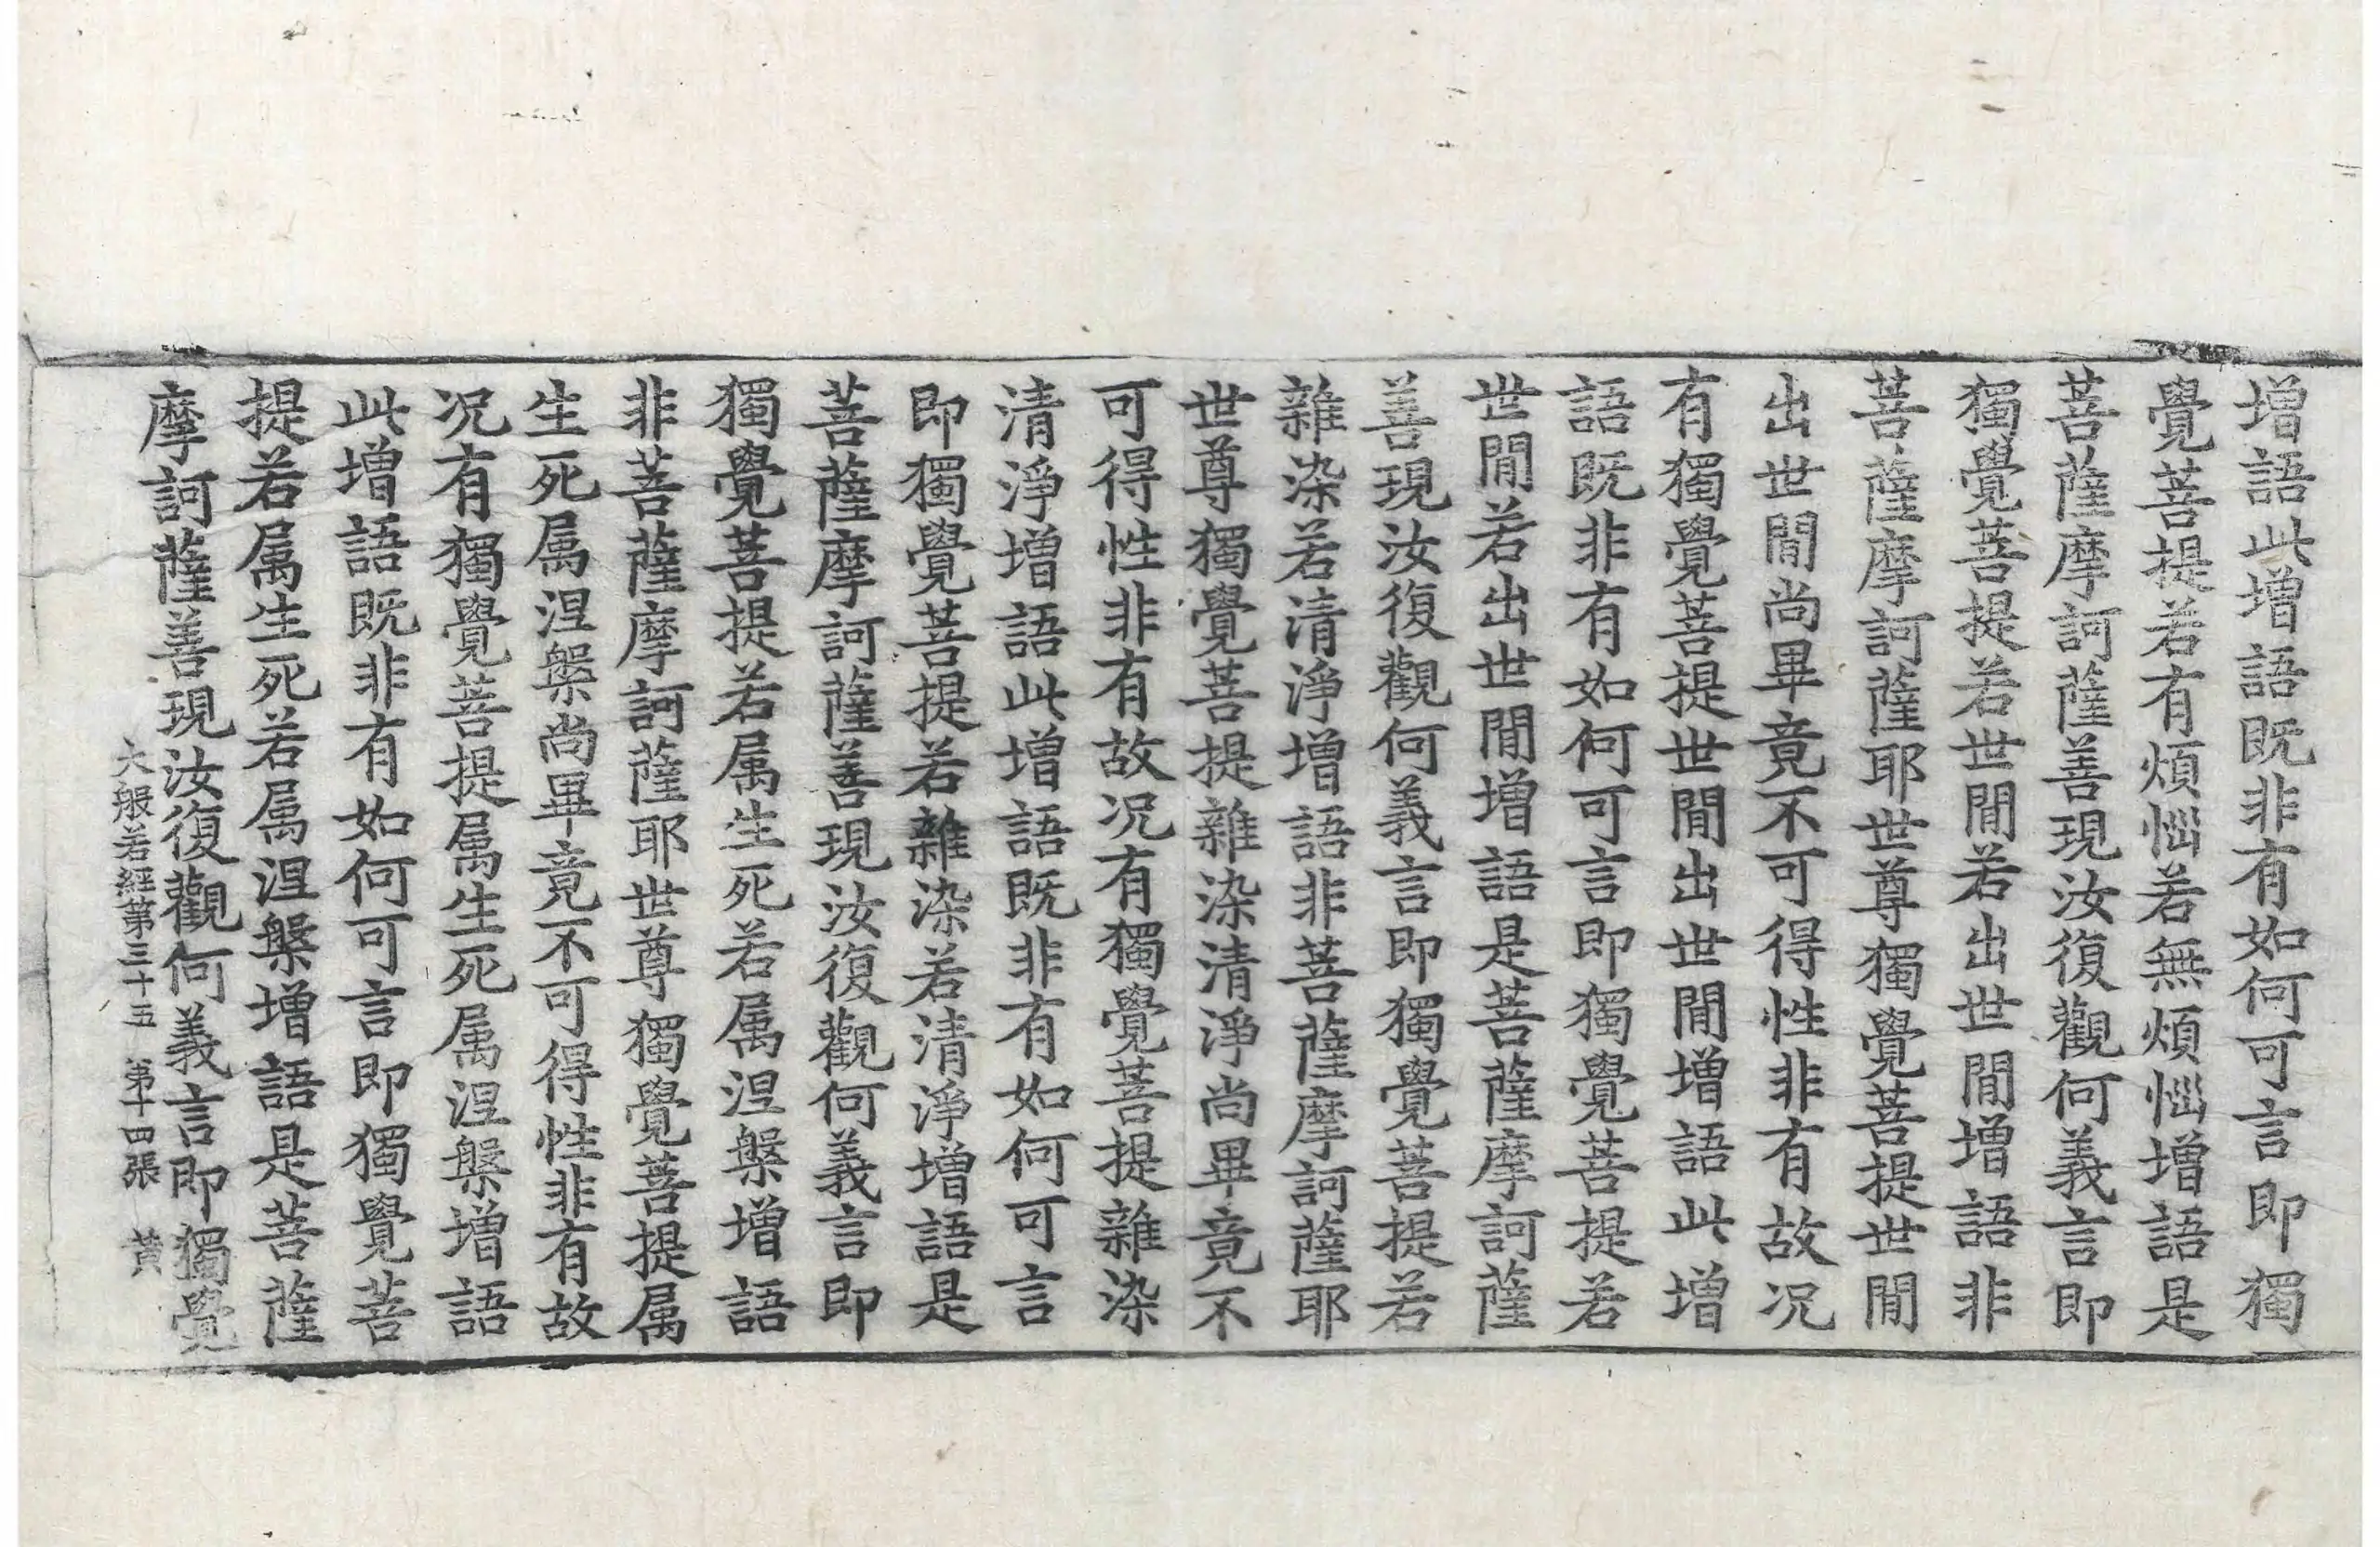 增語此增語既非有如何可言即獨
覺菩提若有煩惱若無煩惱增語是
菩薩摩訶薩善現汝復觀何義言即
獨覺菩提若世閒若出世閒增語非
菩薩摩訶薩耶世尊獨覺菩提世閒
出世閒尚畢竟不可得性非有故况
有獨覺菩提世閒出世閒增語此增
語既非有如何可言即獨覺菩提若
世閒若出世閒增語是菩薩摩訶薩
善現汝復觀何義言即獨覺菩提若
雜染若清淨增語非菩薩摩訶薩耶
世尊獨覺菩提雜染清淨尚畢竟不
可得性非有故况有獨覺菩提雜染
清淨增語此增語既非有如何可言
即獨覺菩提若雜染若清淨增語是
菩薩摩訶薩善現汝復觀何義言即
獨覺菩提若属生死若属涅槃增語
非菩薩摩訶薩耶世尊獨覺菩提属
生死属涅槃尚畢竟不可得性非有故
况有獨覺菩提属生死属涅槃增語
此增語既非有如何可言即獨覺菩
提若属生死若属涅槃增語是菩薩
摩訶薩善現汝復觀何義言即獨覺
大般若經第三十五 第十四張 黄